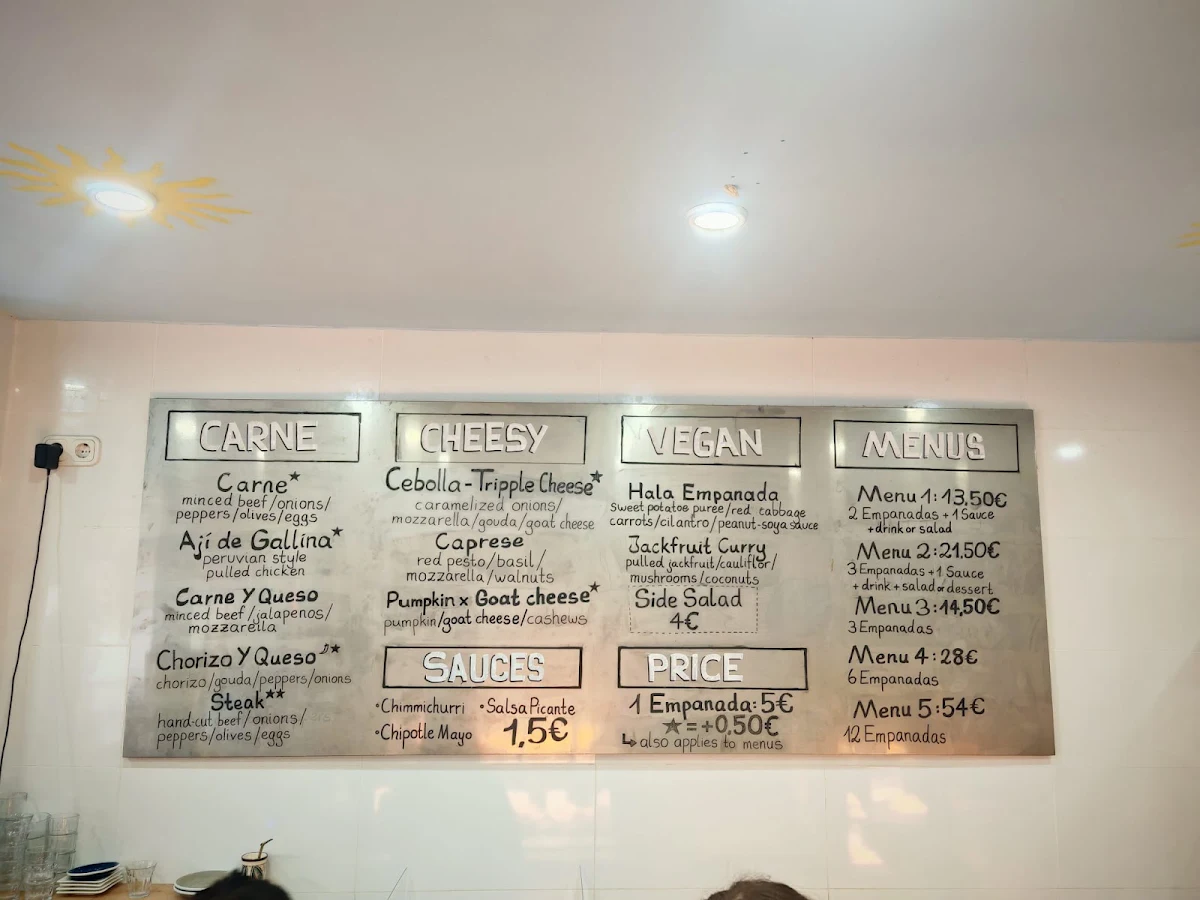 CARNE
Carne★
minced beef/onions/
peppers/olives/eggs
Ají de Gallina★
peruvian style
pulled chicken
Carne Y Queso
minced beef/jalapenos/
mozzarella
Chorizo Y Queso★
chorizo/gouda/peppers/onions
Steak★★
hand-cut beef/onions/
peppers/olives/eggs
CHEESY
Cebolla-Tripple Cheese★
caramelized onions/
mozzarella/gouda/goat cheese
Caprese
red pesto/basil/
mozzarella/walnuts
Pumpkin x Goat cheese★
pumpkin/goat cheese/cashews
SAUCES
•Chimmichurri •Salsa Picante
•Chipotle Mayo 1,5€
VEGAN
Hala Empanada
sweet potatoe puree/red cabbage
carrots/cilantro/peanut-soya sauce
Jackfruit Curry
pulled jackfruit/cauliflor/
mushrooms/coconuts
Side Salad
4€
PRICE
1 Empanada: 5€
★=+0,50€
↳ also applies to menus
MENUS
Menu 1: 13,50€
2 Empanadas + 1 Sauce
+ drink or salad
Menu 2: 21.50€
3 Empanadas + 1 Sauce
+ drink + salad or dessert
Menu 3: 14,50€
3 Empanadas
Menu 4: 28€
6 Empanadas
Menu 5: 54€
12 Empanadas